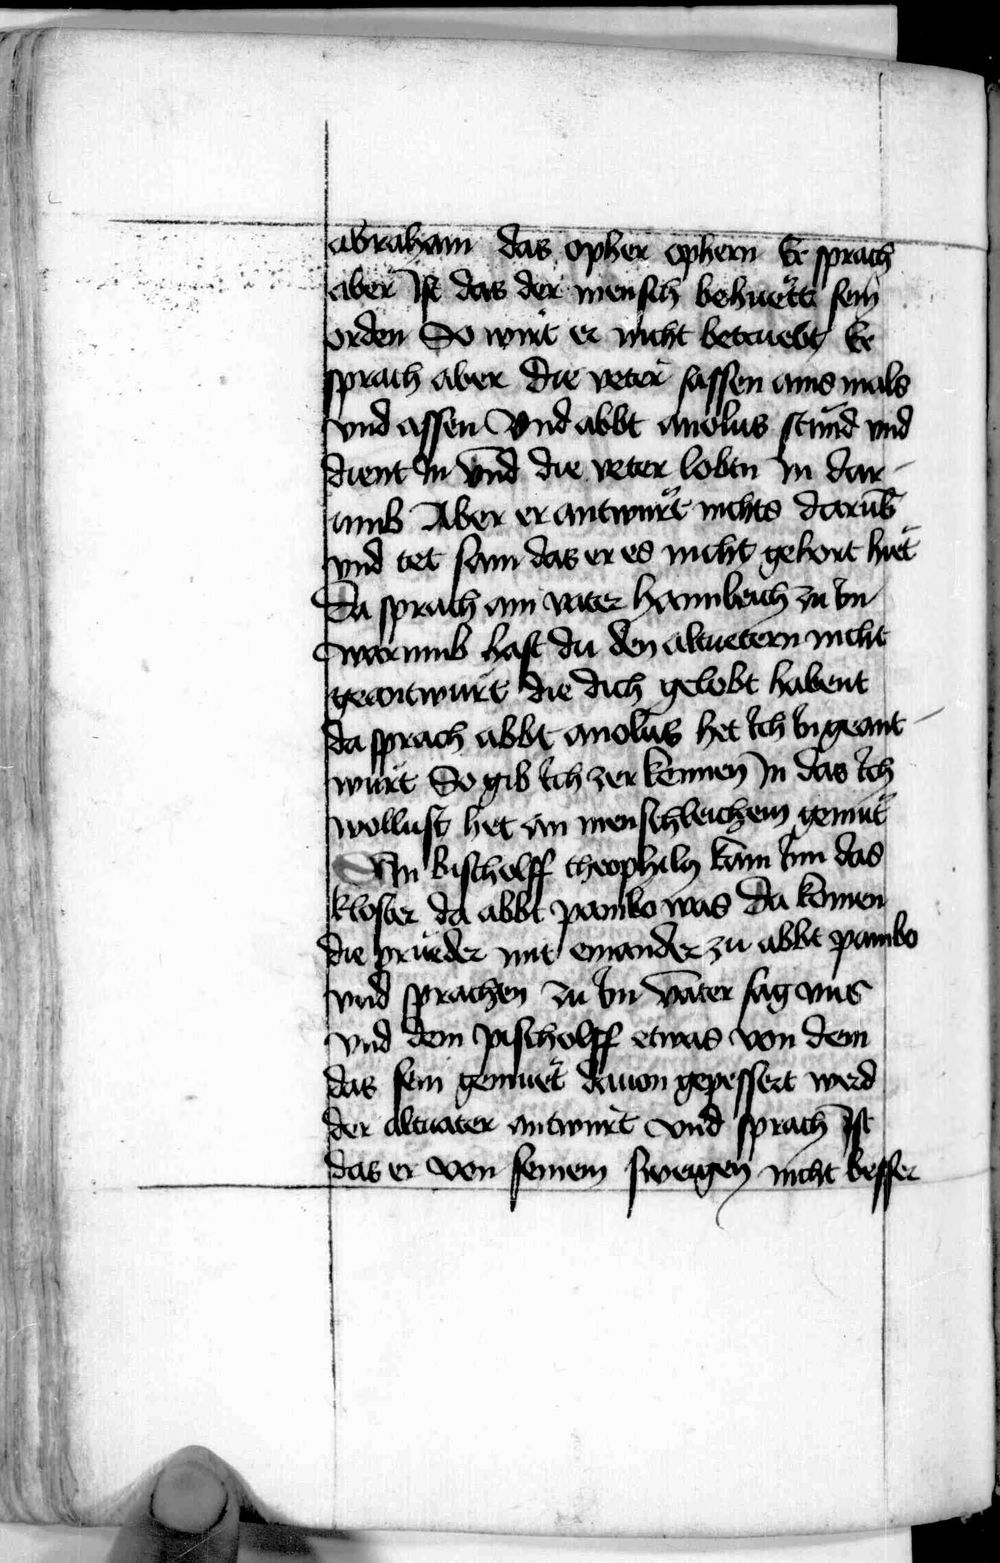 abraham das opher ophern Er sprach
aber Ist das der mensch behuett sein
orden So wirt er nicht betruebt Er
sprach aber Die veter sassen ains mals
vnd assen Vnd abbt anolus stund vnd
dient In vnd die veter lobtn In dar
umb Aber er antwurt nichts darub̄
vnd tet sam das er es nicht gehort hiet
Da sprach ain vater haimleich zu Im
warumb hast du den altuetern nicht
geantwurt die dich gelobt habent
da sprach abbt anolus het Ich In geant
wurt So gib Ich zerkennen In das Ich
wollust het an menschleichem gemut
Ain bischolff theophily kam Inn das
kloster da abbt pambo was Da komen
die prueder mit einander zu abbt pambo
vnd sprachen zu Im vater sag vns
vnd dem pischolff etwas von dem
das sein gemuet dauon gepessert werd
der altuater antwurt vnd sprach Ist
das er von seinem sweigen nicht besser